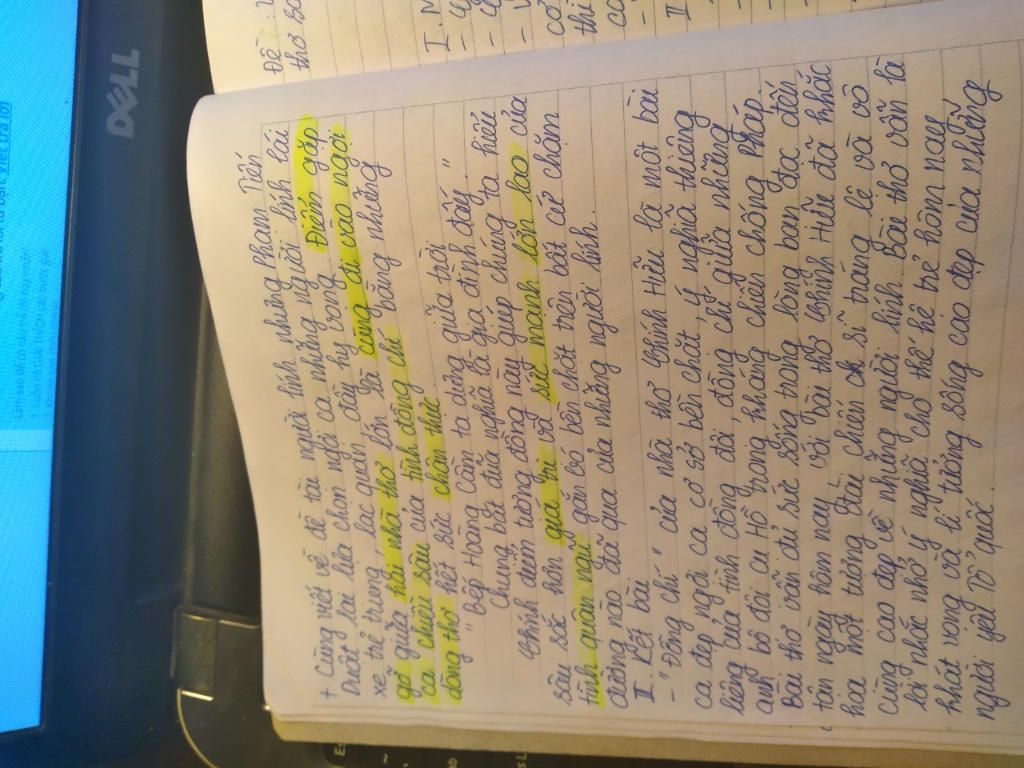 + Cùng viết về đề tài người lính nhưng Phạm Tiến
Duật lại lựa chọn ngợi ca những người lính lái
xe trẻ trung, lạc quan, đầy hy vọng. Điểm gặp
gỡ giữa hai nhà thơ lớn là cùng đi vào ngợi
ca chiều sâu của tình đồng chí bằng những
dòng thơ hết sức chân thực
" Bếp Hoàng Cầm ta dựng giữa trời
Chung bát đũa nghĩa là gia đình đấy "
Chính điểm tương đồng này giúp chúng ta hiểu
sâu sắc hơn giá trị và sức mạnh lớn lao của
tình quân ngũ gắn bó bền chặt trên bất cứ chặn
đường nào đã qua của những người lính.
I. Kết bài
- " Đồng chí " của nhà thơ Chính Hữu là một bài
ca đẹp ngợi ca cơ sở bền chặt ý nghĩa thiêng
liêng của tình đồng đội, đồng chí giữa những
anh bộ đội cụ Hồ trong kháng chiến chống Pháp
Bài thơ vẫn đủ sức sống trong lòng bạn đọc đến
tận ngày hôm nay với bài thơ Chính Hữu đã khắc
hoạ một tượng đài chiến sĩ tráng lệ và vô
cùng cao đẹp về những người lính. Bài thơ vẫn là
lời nhắc nhở ý nghĩa cho thế hệ trẻ hôm nay
khát vọng và lí tưởng sống cao đẹp của những
người yêu Tổ quốc.
Đề
thơ
I. M
DELL